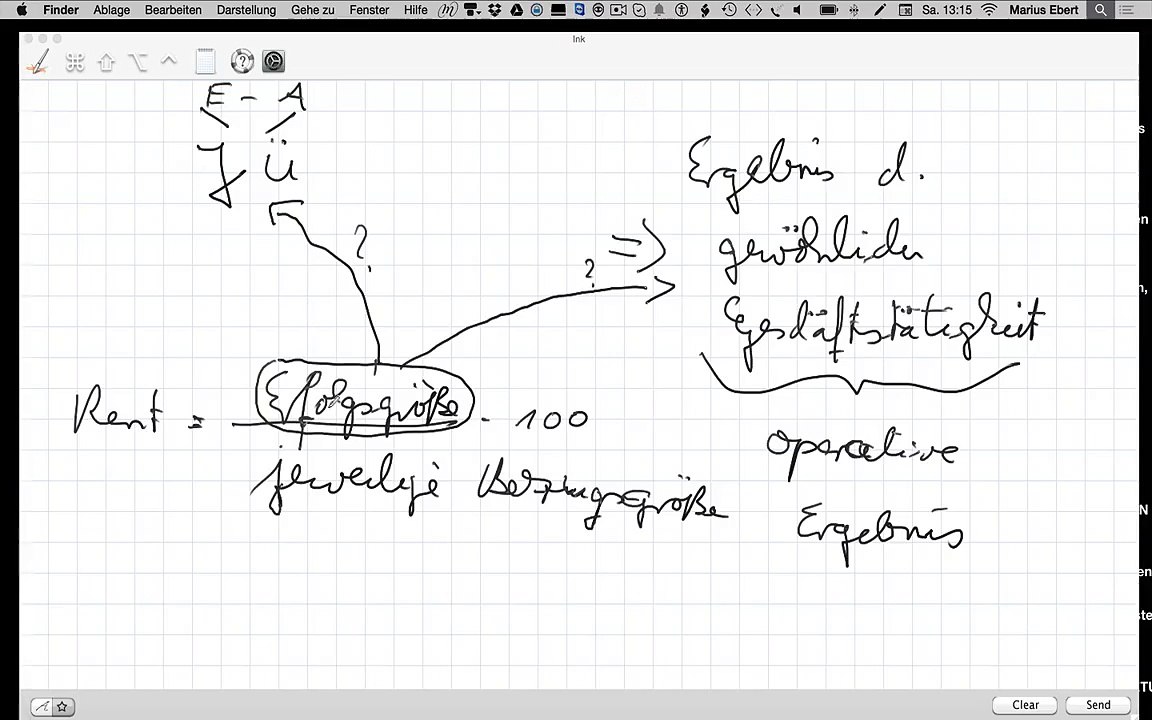 Finder Ablage Bearbeiten Darstellung Gehe zu Fenster Hilfe Sa. 13:15 Marius Ebert
Ink
E - A
JÜ
?
Ergebnis d.
gewöhnlichen
Geschäftstätigkeit
=>
?
Rent = Erfolgsgröße · 100
jeweilige Bezugsgröße
operative
Ergebnis
Clear Send